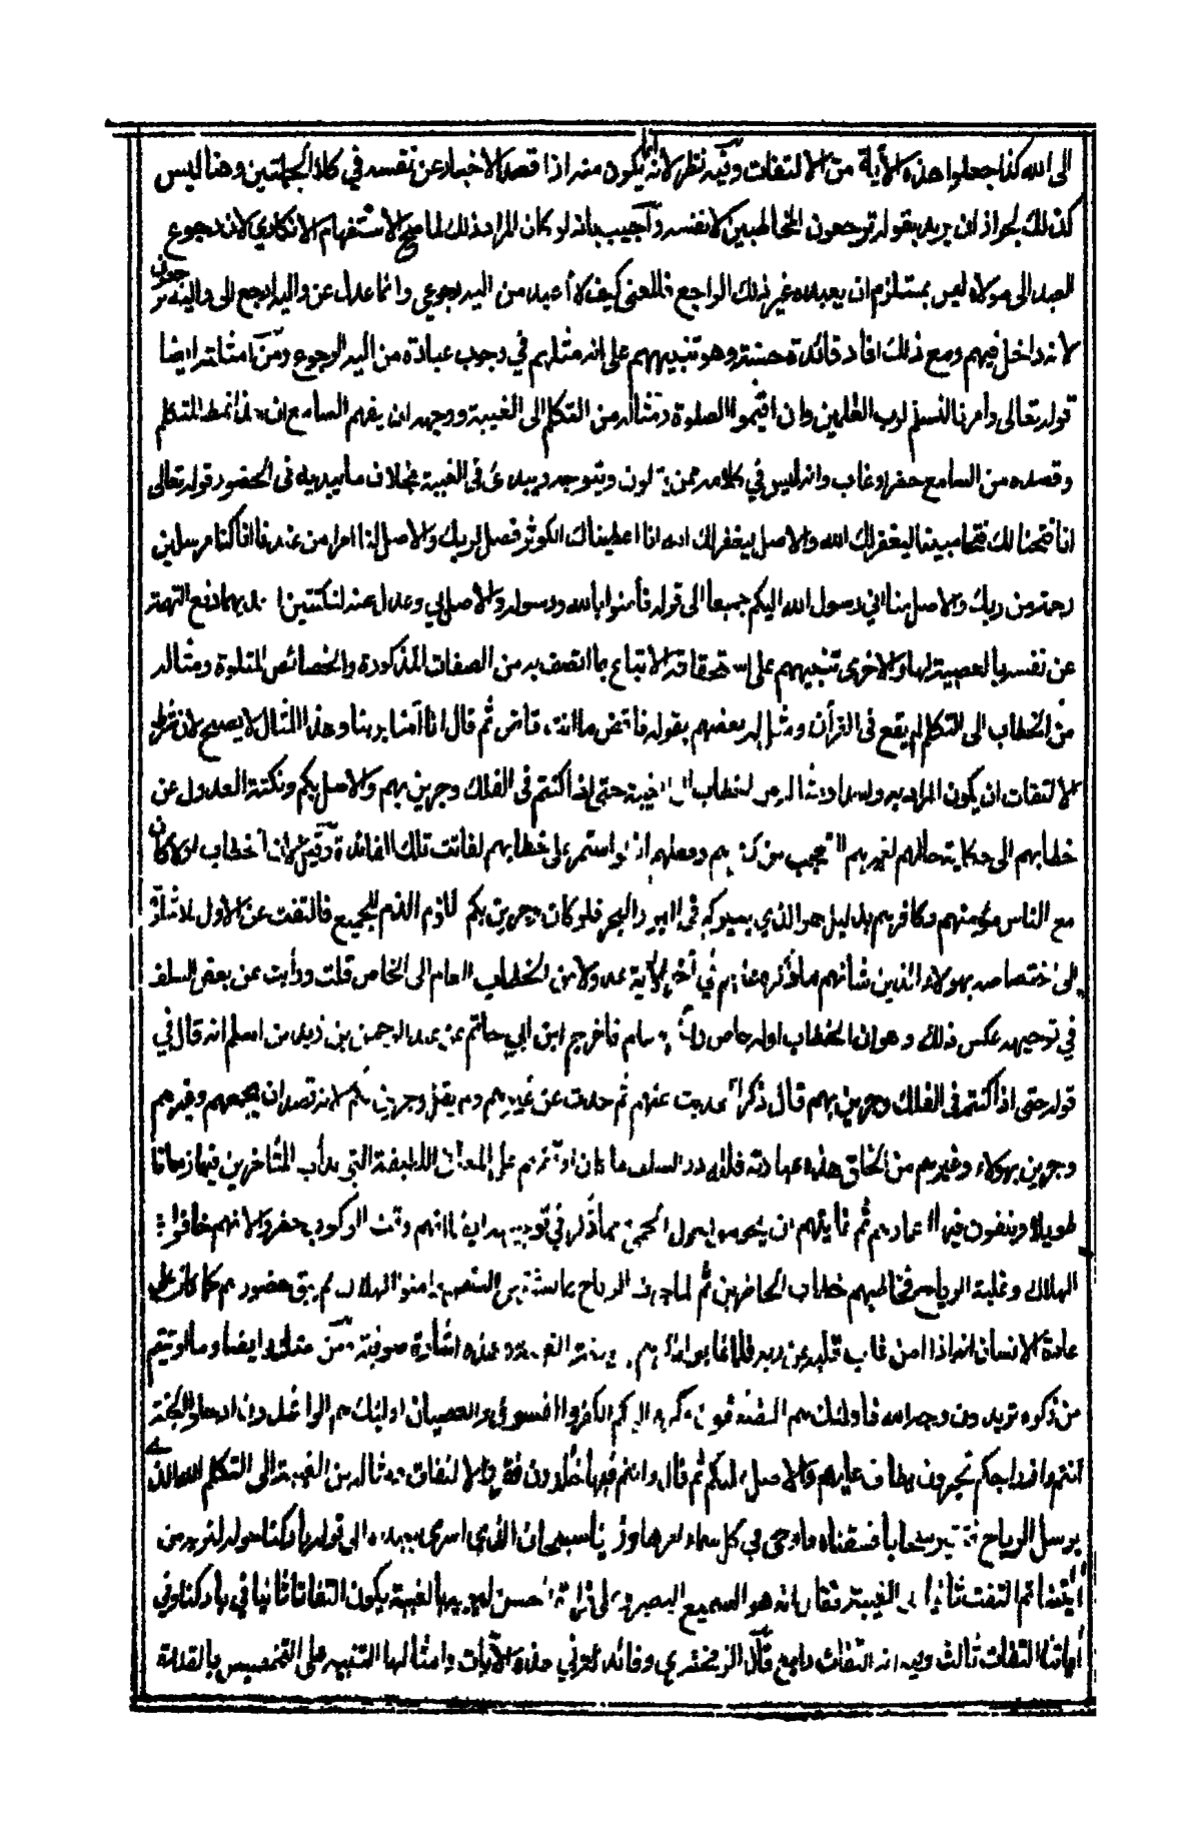 الى الله كذا جعلوا هذه الأية من الالتفات وفيه نظر لأنه انما يكون منه اذا قصد الاخبار عن نفسه في كلا الجملتين وهنا ليس
كذلك لجواز ان يريد بقوله ترجعون المخاطبين لا نفسه وأجيب بانه لو كان المراد ذلك لما صح الاستفهام الانكاري لان رجوع
العبد الى مولاه ليس بمستلزم ان يعبده غير ذلك الراجع فالمعنى كيف لا أعبد من اليه رجوعي وانما عدل عن واليه ارجع الى واليه ترجعون
لانه داخل فيهم ومع ذلك افاد فائدة حسنة وهو تنبيههم على انه مثلهم في وجوب عبادة من اليه الرجوع ومن امثلته ايضا
قوله تعالى وأمرنا لنسلم لرب العلمين وان اقيموا الصلوة ومثاله من التكلم الى الغيبة ووجهه ان يفهم السامع ان هذا نمط المتكلم
وقصده من السامع حضر او غاب وانه ليس في كلامه ممن يتلون ويتوجه ويبدى فى الغيبة خلاف ما يبديه فى الحضور قوله تعالى
انا فتحنا لك فتحا مبينا ليغفر لك الله والاصل ليغفر لك انا اعطيناك الكوثر فصل لربك والاصل لنا امرا من عندنا انا كنا مرسلين
رحمة من ربك والاصل منا اني رسول الله اليكم جميعا الى قوله فأمنوا بالله ورسوله والاصل بي وعدل عنه لنكتتين دفع التهمة
عن نفسه بالعصبية لها والاخرى تنبيههم على استحقاقه الاتباع بما اتصف به من الصفات المذكورة والخصائص المتلوة ومثاله
من الخطاب الى التكلم لم يقع فى القرأن ومثل له بعضهم بقوله فاقض ما انت قاض ثم قال انا آمنا بربنا وهذا المثال لا يصح لان شرط
الالتفات ان يكون المراد به واحدا ومثاله من الخطاب الى الغيبة حتى اذا كنتم فى الفلك وجرين بهم والاصل بكم ونكتة العدول عن
خطابهم الى حكاية حالهم لغيرهم التعجب من كفرهم وفعلهم اذ لو استمر على خطابهم لفاتت تلك الفائدة وقيل لان الخطاب اولا كان
مع الناس مؤمنهم وكافرهم بدليل هو الذي يسيركم فى البر والبحر فلو كان وجرين بكم للزم الذم للجميع فالتفت عن الاول للاشارة
الى اختصاصه بهولاء الذين شأنهم ما ذكره عنهم في آخر الآية عدولا من الخطاب العام الى الخاص قلت ورأيت عن بعض السلف
في توجيهه عكس ذلك وهو ان الخطاب اوله خاص فاخرج ابن ابي حاتم عن عبد الرحمن بن زيد بن اسلم انه قال في
قوله حتى اذا كنتم فى الفلك وجرين بهم قال ذكر الحديث عنهم ثم حدث عن غيرهم ولم يقل وجرين بكم لانه قصد ان يجمعهم وغيرهم
وجرين بهولاء وغيرهم من الخلق هذه عبارته فلله در السلف ما كان اوقفهم على المعاني اللطيفة التي يدأب المتأخرين فيها زمانا
طويلا ويفنون فيها اعمارهم ثم غايتهم ان يحوموا حول الحمى مما ذكر في توجيهه ايضا انهم وقت الركوب حضروا لانهم خافوا
الهلاك وغلبة الرياح فخاطبهم خطاب الحاضرين ثم لما جرت الرياح بما تشتهي السفن وامنوا الهلاك لم يبق حضورهم كما كان على
عادة الانسان انه اذا امن غاب قلبه عن ربه فلما غابوا اشارة صوفية ومن مثله ايضا وما اوتيتم
من زكوة تريدون وجه الله فاولئك هم المضعفون وكره اليكم الكفر والفسوق والعصيان اولئك هم الراشدون ادخلوا الجنة
انتم وازواجكم تحبرون يطاف عليهم والاصل عليكم ثم قال وانتم فيها خلدون فكرر الالتفات ومثاله من الغيبة الى التكلم الله الذي
يرسل الرياح فتثير سحابا فسقناه واوحى في كل سماء امرها وزينا سبحان الذي اسرى بعبده الى قوله باركنا حوله لنريه من
أيتنا ثم التفت ثانيا الى الغيبة فقال انه هو السميع البصير وعلى قراءة الحسن ليريه بالغيبة يكون التفاتا ثانيا في باركنا وفي
أياتنا التفات ثالث وفي انه التفات رابع قال الزمخشري وفائدته في هذه الآيات وامثالها التنبيه على التخصيص بالقدرة